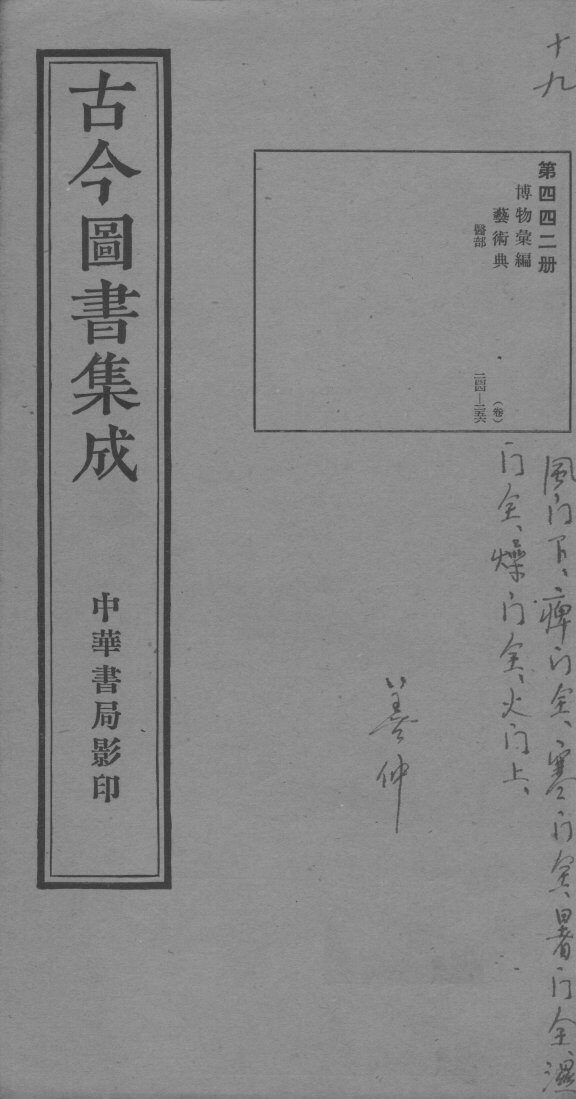 十九
第四四二册
博物彙編
藝術典
醫部
（卷）
風门下、痺门全、寒门全、暑门全、濕
门全、燥门全、火门上、
仲
古今圖書集成
中華書局影印